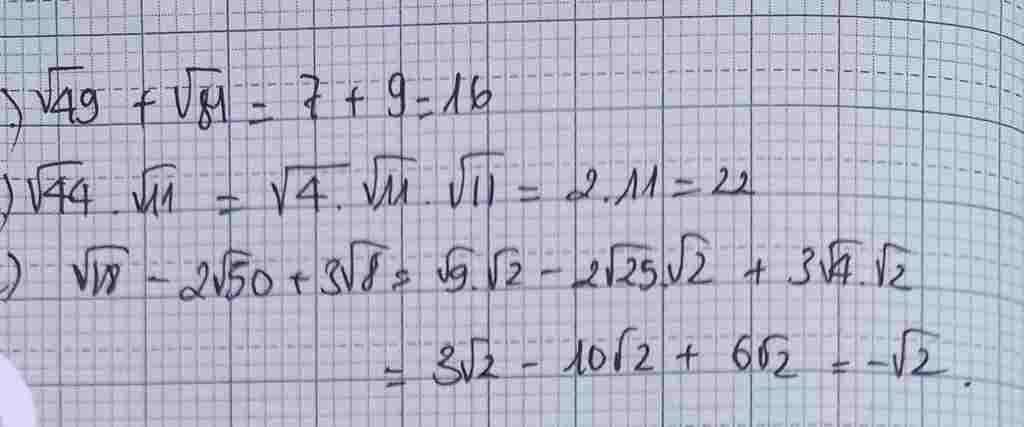 ) √49 + √81 = 7 + 9 = 16
) √44 . √11 = √4 . √11 . √11 = 2.11 = 22
) √18 - 2√50 + 3√8 = √9.√2 - 2√25.√2 + 3√4.√2
= 3√2 - 10√2 + 6√2 = -√2.